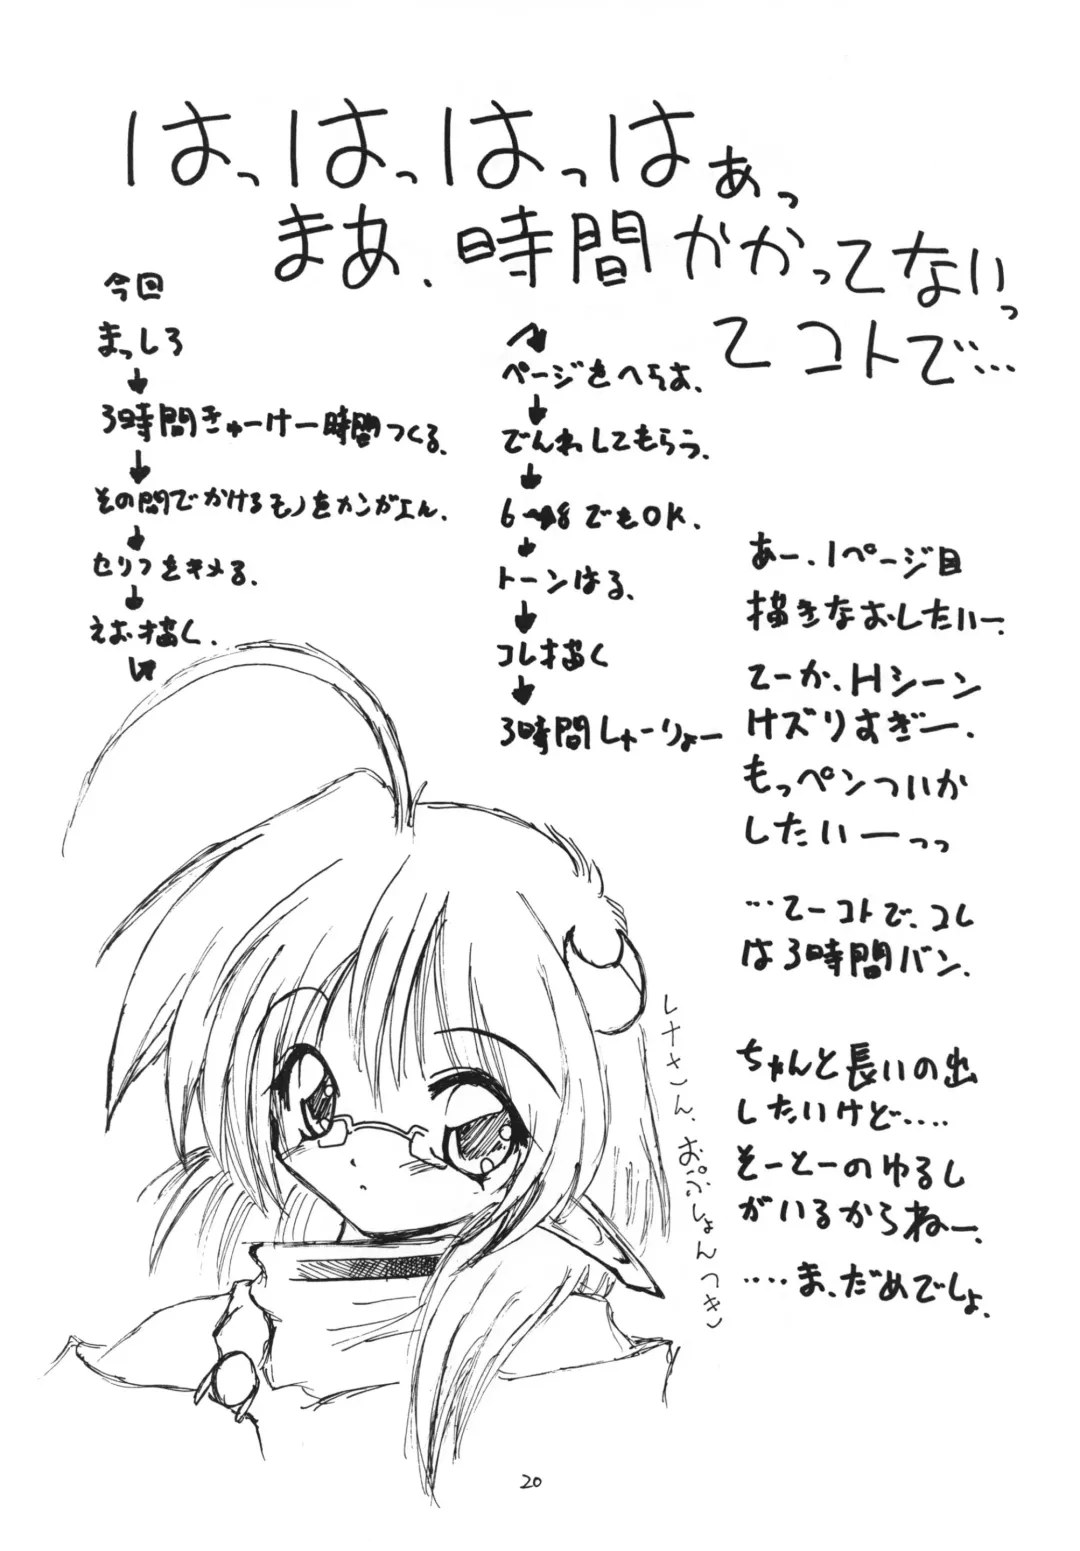 はっはっはっはぁっ
まあ、時間かかってないっ
てコトで…
今回
まっしろ
↓
3時間きゅーけー時間つくる.
↓
その間でかけるモノをカンガエル.
↓
セリフをキメる.
↓
えお描く.
ページをへらす.
↓
でんわしてもらう.
↓
6〜8でもOK.
↓
トーンはる.
↓
コレ描く
↓
3時間しゅーりょー
あー、1ページ目
描きなおしたいー.
てーか、Hシーン
けズりすぎー.
もっペンついか
したいーっっ
…てーコトで、コレ
は3時間バン.
ちゃんと長いの出
したいけど‥‥
そーとーのゆるし
がいるからねー.
‥‥ま、だめでしょ.
レナさん、おぷしょんつき
20